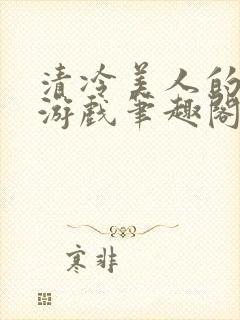 清冷美人的
游戏笔趣阁
寒非